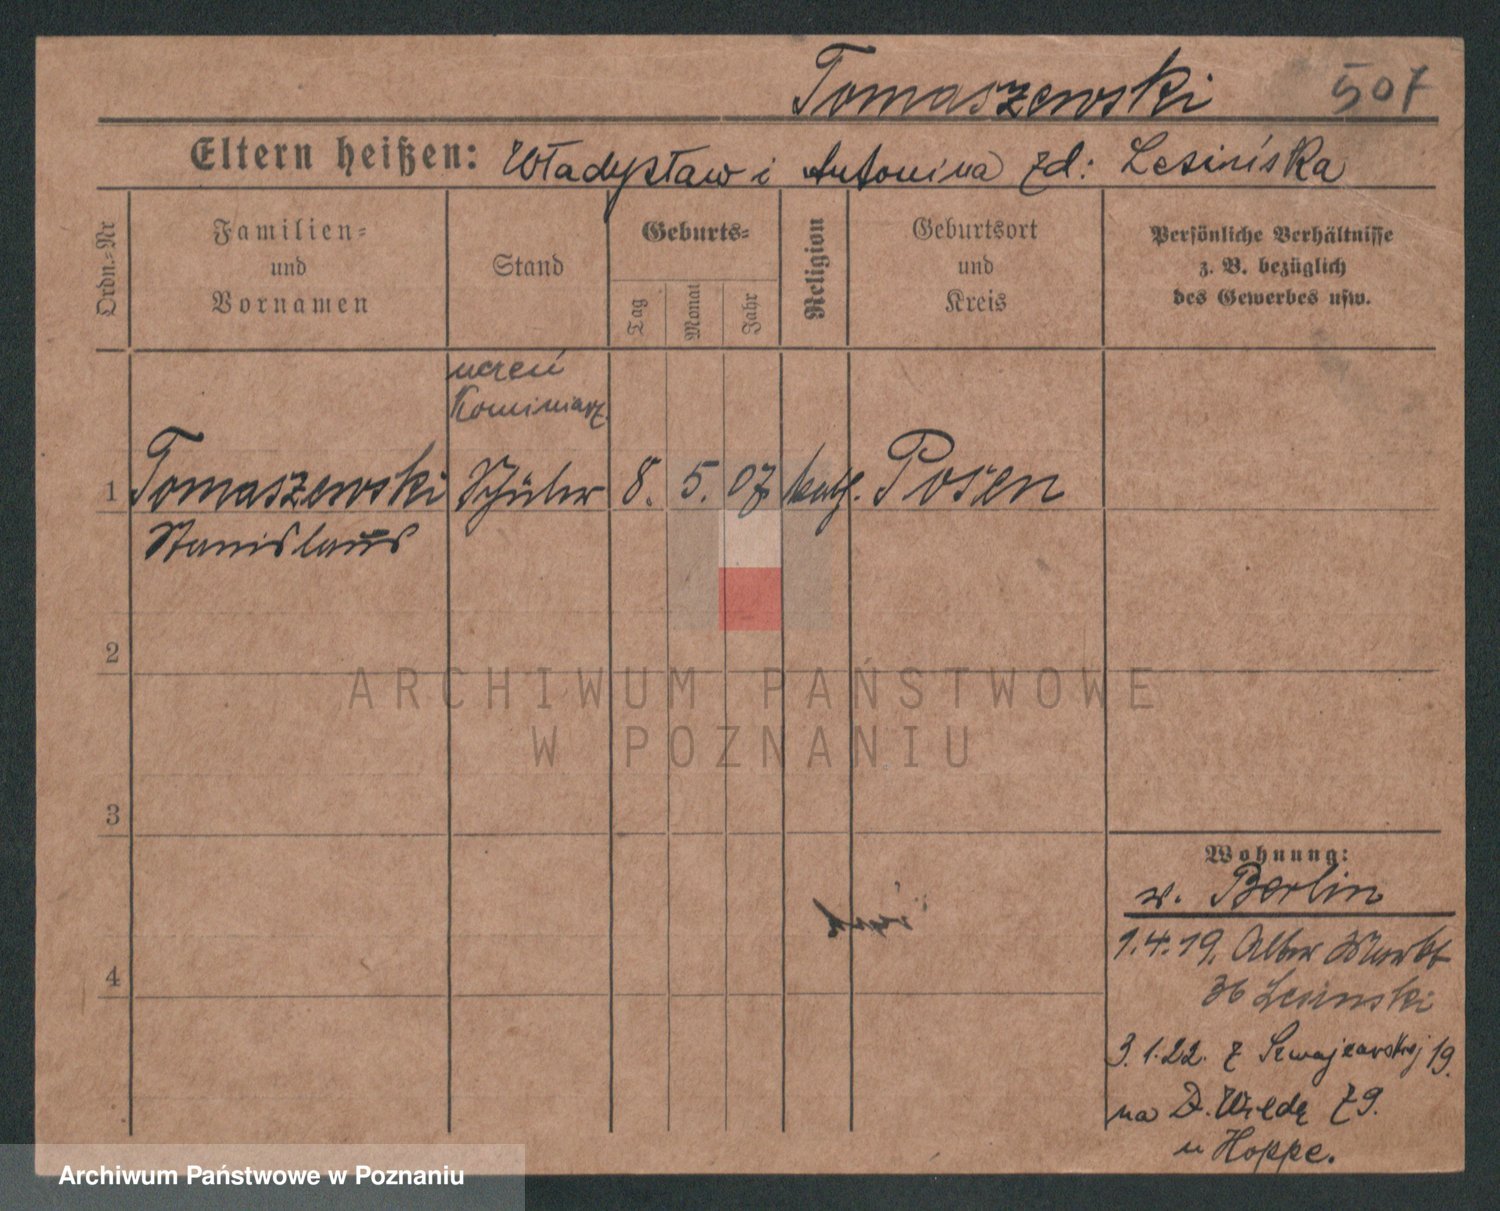 Tomaszewski 507
Eltern heißen: Władysław i Antonina zd: Lesińska
Ordn.-Nr
Familien-
und
Vornamen
Stand
Geburts-
Tag
Monat
Jahr
Religion
Geburtsort
und
Kreis
Persönliche Verhältnisse
z. B. bezüglich
des Gewerbes usw.
uczeń
Kominiarz
1 Tomaszewski Schüler 8. 5. 07 kath. Posen
Stanislaus
2
ARCHIWUM PAŃSTWOWE
W POZNANIU
3
Wohnung:
v. Berlin
1.4.19. Alter Markt
36 Lesinski
4
3.1.22. z Szwajcarskiej 19.
na D. Wildę 79.
u Hoppe.
Archiwum Państwowe w Poznaniu